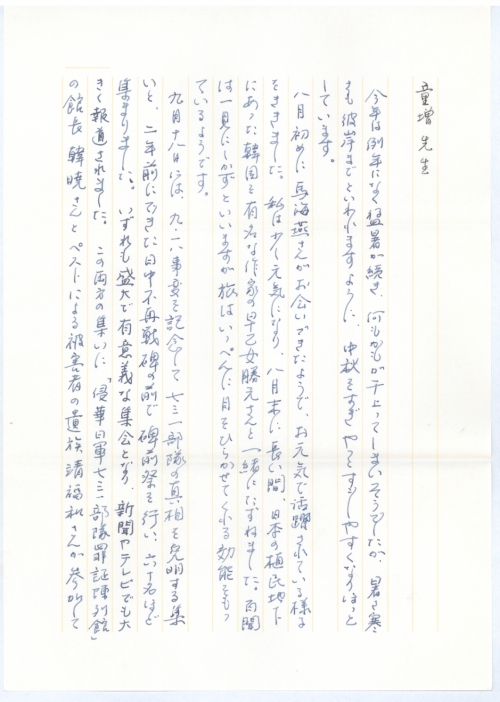 童増 先生
今年は例年になく猛暑が続き、何もかもが干上ってしまいそうでしたが、暑さ寒
さも彼岸までといわれますように、中秋をすぎ やっとすごしやすくなりほっと
しています。
八月初めに 馬海燕さんがお会いできたようで、お元気で活躍されている様子
をききました。 私は少し元気になり、八月末に 長い間、日本の植民地下
にあった韓国を有名な作家の早乙女勝元さんと一緒にたずねました。百聞
は一見にしかずといいますが旅はいっぺんに目をひらかせてくれる効能をもっ
ているようです。
九月十八日には、九・一八事変を記念して 七三一部隊の真相を究明する集
いと、二年前にできた日中不再戦碑の前で 碑前祭を行い、六十名ほど
集まりました。 いずれも盛大で有意義な集会となり、新聞やテレビでも大
きく報道されました。 この両方の集いに「侵華日軍七三一部隊罪証陳列館」
の館長 韓暁さんと ペストによる被害者の遺族 靖福和さんが参加して